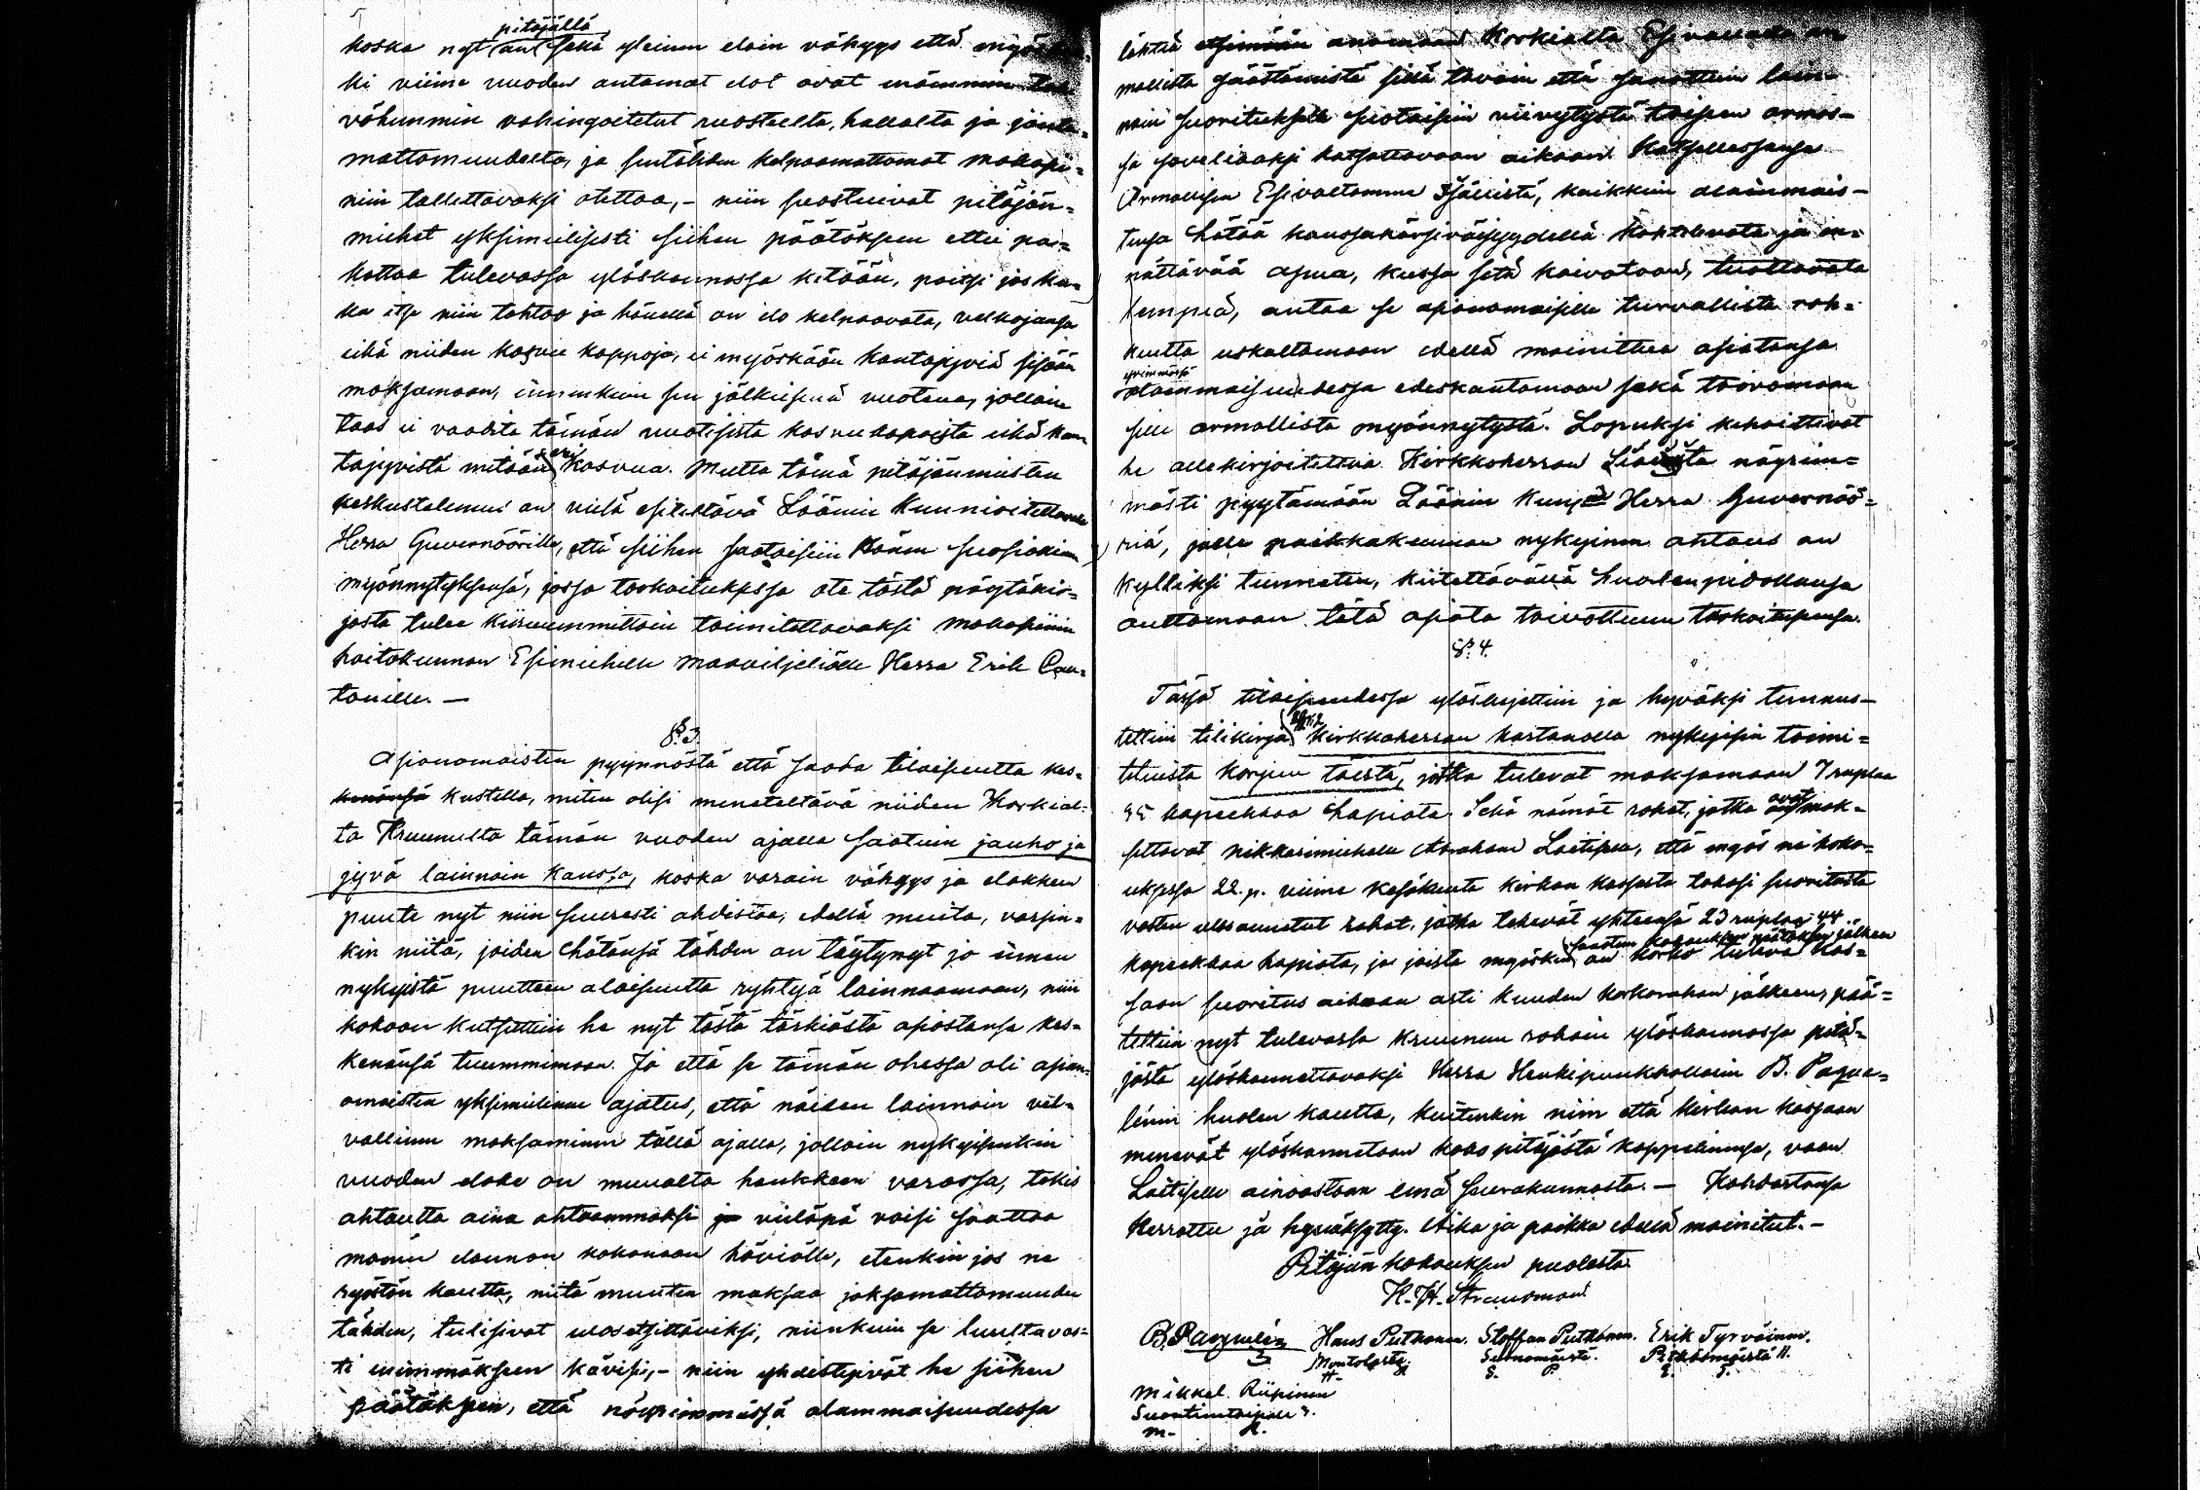 pitäjällä
koska nyt on sekä yleinen eloin vähyys että myös
ki viime vuoden antamat elot ovat enämmin tah
vähemmin vahingoitetut ruosteelta, hallalta ja jouta-
mattomuudelta, ja sentähden kelpaamattomat makasi-
niin tallettavaksi otettaa, - niin suostuivat pitäjän-
miehet yksimielisesti siihen päätökseen ettei pa-
kottaa tulevassa ylöskannossa ketään, paitsi jos ku-
ka itse niin tahtoo ja hänellä on elo kelpaavata, velkojansa
eikä niiden kasvu kappoja, ei myöskään kantojyviä sisään
maksamaan, ennenkuin sen jälkeisenä vuotena, jolloin
taas ei vaadita tämän vuotisista kasvukapoista eikä kan
tojyvistä mitään eri kasvua. Mutta tämä pitäjänmiesten
keskustelemus on vielä esitettävä Läänin Kunnioitettavalle
Herra Guvernöörille, että siihen saataisiin Hänen suosiollinen
myönnytyksensä, jossa tarkoituksessa ote tästä pöytäkir-
jasta tulee kiiruummittain toimitettavaksi makasiinin
hoitokunnan Esimiehelle maanviljeliälle Herra Erik Cau-
tonille. —
§. 3.
Asianomaisten pyynnöstä että saada tilaisuutta kes-
kenänsä kustella, miten olisi meneteltävä niiden Korkial-
ta Kruunulta tämän vuoden ajalla saatuin jauho ja
jyvä lainnain kanssa, koska varain vähyys ja elokkeen
puute nyt niin suuresti ahdistaa, edellä muita, varsin-
kin niitä, joiden hätänsä tähden on täytynyt jo ennen
nykyistä puutteen alaisuutta ryhtyä lainnaamaan, niin
kokoon kutsuttiin he nyt tästä tärkiästä asiastansa kes-
kenänsä tuummimaan. Ja että se tämän ohessa oli asian-
omaisten yksimielinen ajatus, että näiden lainnain vel-
vallinen maksaminen tällä ajalla, jolloin nykyisenkin
vuoden eloke on muualta hankkeen varassa, tekis
ahtautta aina ahtaammaksi ja vieläpä voisi saattaa
monen elannon kokonaan häviölle, etenkin jos ne
ryöstön kautta, niitä muuten maksaa jaksamattomuuden
tähden, tulisivat ulosetsittäviksi, niinkuin se luultavas-
ti useimmakseen kävisi, - niin yhdistyivät he siihen
päätökseen, että nöyrimmässä alammaisuudessa
lähteä etsimään anomaan Korkialta Esivallalta ar
mollista päästämistä sillä tavoin että sanottuin lain-
nain suorituksella suotaisiin viivytystä toisen armos-
sa soveliaaksi katsottavaan aikaan. Katsellessansa
Armollisen Esivaltamme Isällistä, kaikkein alammais-
tensa hätää kanssakärsiväisyydellä kohtelevata ja en-
nättävää apua, kussa sitä kaivataan, tuottavata
lempeä, antaa se asianomaisille turvallista roh-
keutta uskaltamaan edellä mainittua asiatansa
syvimmässä
alammaisuudessa edeskantamaan sekä toivomaan
sille armollista myönnytystä. Lopuksi kehoittivat
he allekirjoitettua Kirkkoherran Sijaista nöyrim-
mästi pyytämään Läänin Herra Guvernöö-
riä, jolle paikkakunnan nykyinen ahtaus on
kylliksi tunnettu, kiitettävällä huolenpidollansa
auttamaan tätä asiata toivottuun tarkoitukseensa.
§. 4.
Tässä tilaisuudessa ylösluettiin ja hyväksi tunnus-
tettiin tilikirja Kirkkoherran kartanolla nykyisin toimi-
tetuista korjuu töistä, jotka tulevat maksamaan 7 ruplaa
95 kopeekkaa hopiata. Sekä nämät rahat, jotka ovat mak-
settavat nikkarimiehelle Abraham Laitiselle, että myös ne koko-
uksessa 22. p. viime kesäkuuta kirkon kassasta takasi suoritusta
vasten ulosannetut rahat, jotka tekevät yhteensä 23 ruplaa 44
kopeekkaa hopiata, ja joista myöskin saatun kokouksen päätöksen jälkeen
on korko tuleva kas-
saan suoritus aikaan asti kuuden korkorahan jälkeen, pää-
tettiin nyt tulevassa Kruunun rahain ylöskannossa pitä-
jästä ylöskannettavaksi Herra Henkipuukhollarin B. Paque-
linin huolen kautta, kuitenkin niin että kirkon kassaan
menevät ylöskannetaan koko pitäjästä kappelinensa, vaan
Laitiselle ainoastaan emä seurakunnasta. — Kohdastansa
kerrottu ja hyväksytty. Aika ja paikka edellä mainitut. —
Pitäjän kokouksen puolesta
H. H. Strandman
B. Paquelin Hans Putkonen. Staffan Putkonen. Erik Tyrväinen.
S. P. E. T.
Mikkel Riipinen
M. R.